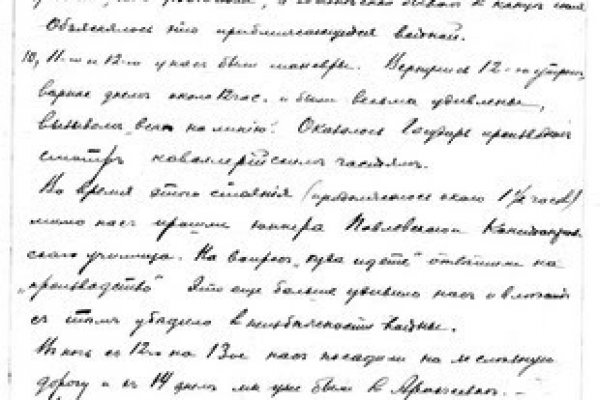 Объяснялось это приближающейся войной.
10, 11-го и 12-го у нас были маневры. Вернулись 12-го утром,
вернее днем около 12 час. и были весьма удивлены,
вызывом "всех на линию". Оказалось Государь производит
смотр кавалерийским частям.
Во время этого стояния (продолжалось около 1 1/2 часов)
мимо нас прошли юнкера Павловского Констант
ского училища. На вопрос "куда идете" отвечали на
"производство" Это еще больше удивило нас и
с тем убедило в неизбежности войны.
В ночь с 12го на 13ое нас посадили на железную
дорогу и к 14 днем мы уже были в